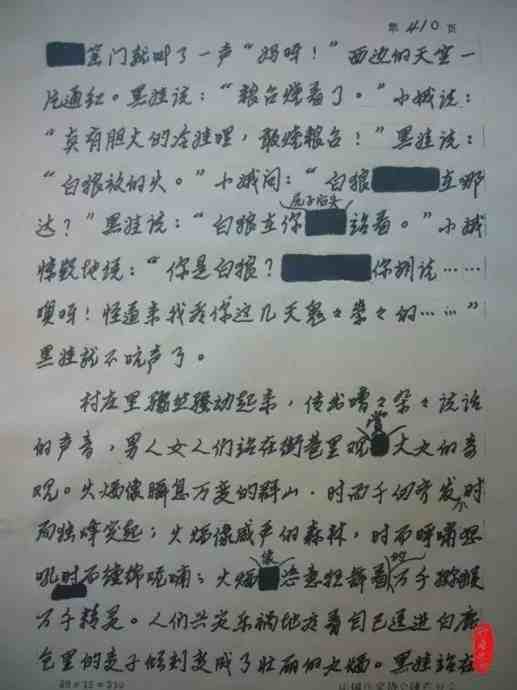 第 410 页
窑门就叫了一声“妈呀！”西边的天空一
片通红。黑娃说：“粮台烧着了。”小娥说：
“真有胆大的冷娃哩，敢烧粮台！”黑娃说：
“白狼放的火。”小娥问：“白狼在哪
达？”黑娃说：“白狼在你尻子后头站着。”小娥
惊疑地说：“你是白狼？你胡说……
噢呀！怪道来我看你这几天鬼鬼祟祟的……”
黑娃就不吭声了。
村庄里骚动起来，传出嘈嘈杂杂说话
的声音，男人女人们站在街巷里观赏大火的奇
观。火焰像瞬息万变的群山，时而千仞齐发，时
而独峰突起；火焰像威严的森林，时而呼啸怒
吼时而缠绵呢喃；火焰像恣意狂舞着的万千猕猴
万千精灵。人们兴灾乐祸地看着自己送进白鹿
仓里的麦子顷刻变成了壮丽的火焰。黑娃站在